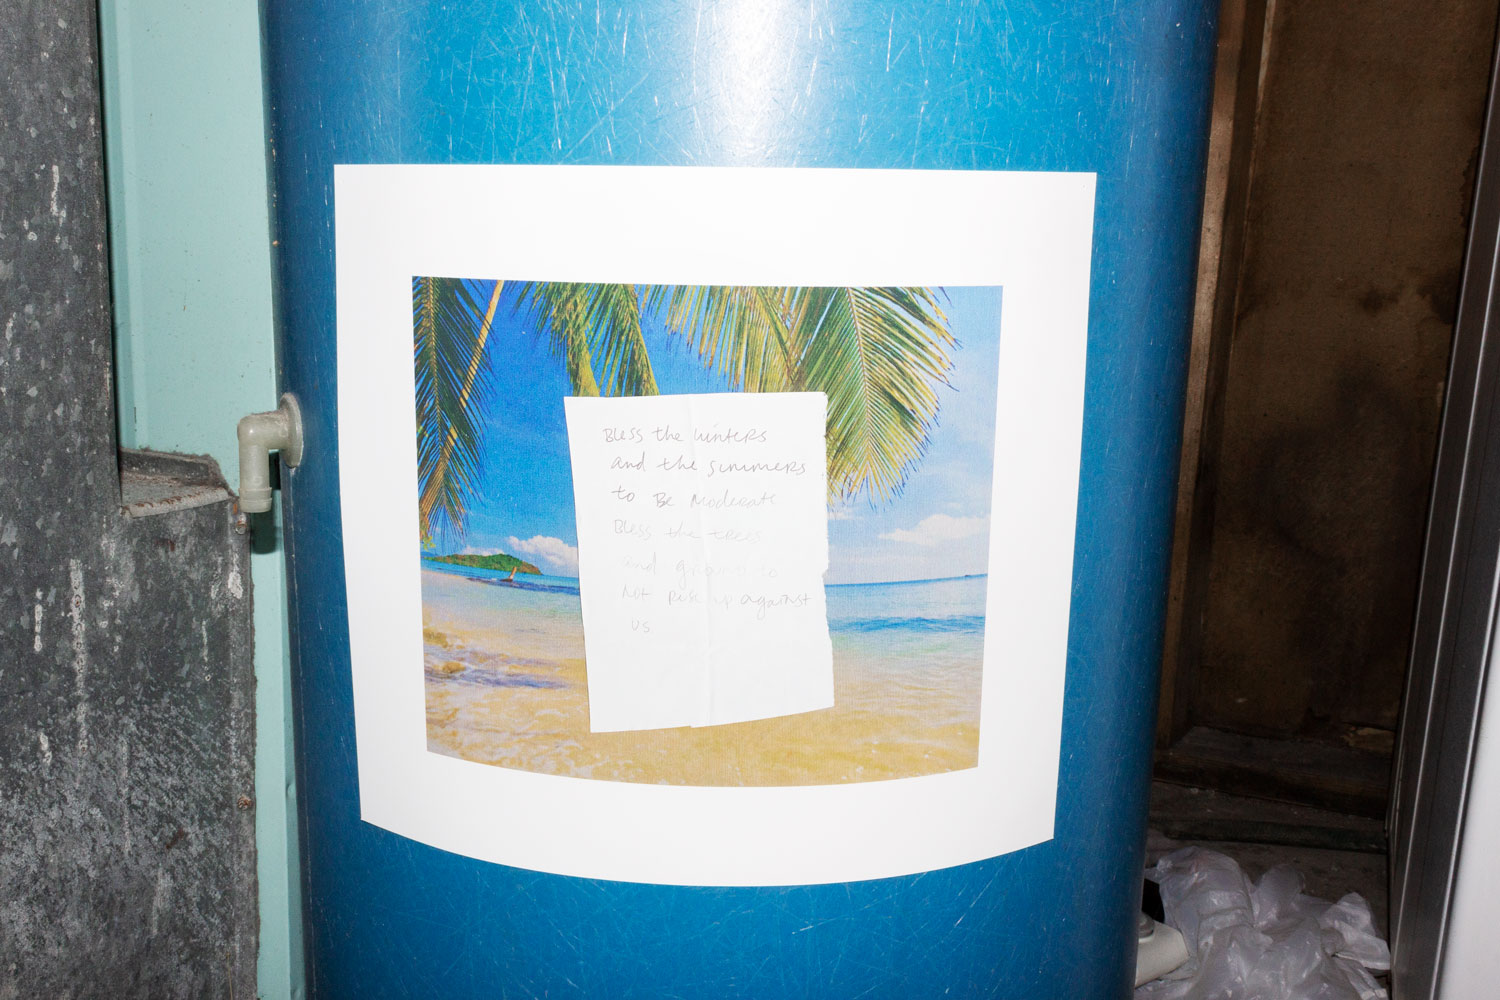 Bless the winters
and the summers
to Be Moderate
Bless the trees
and ground to
Not Rise up against
us.